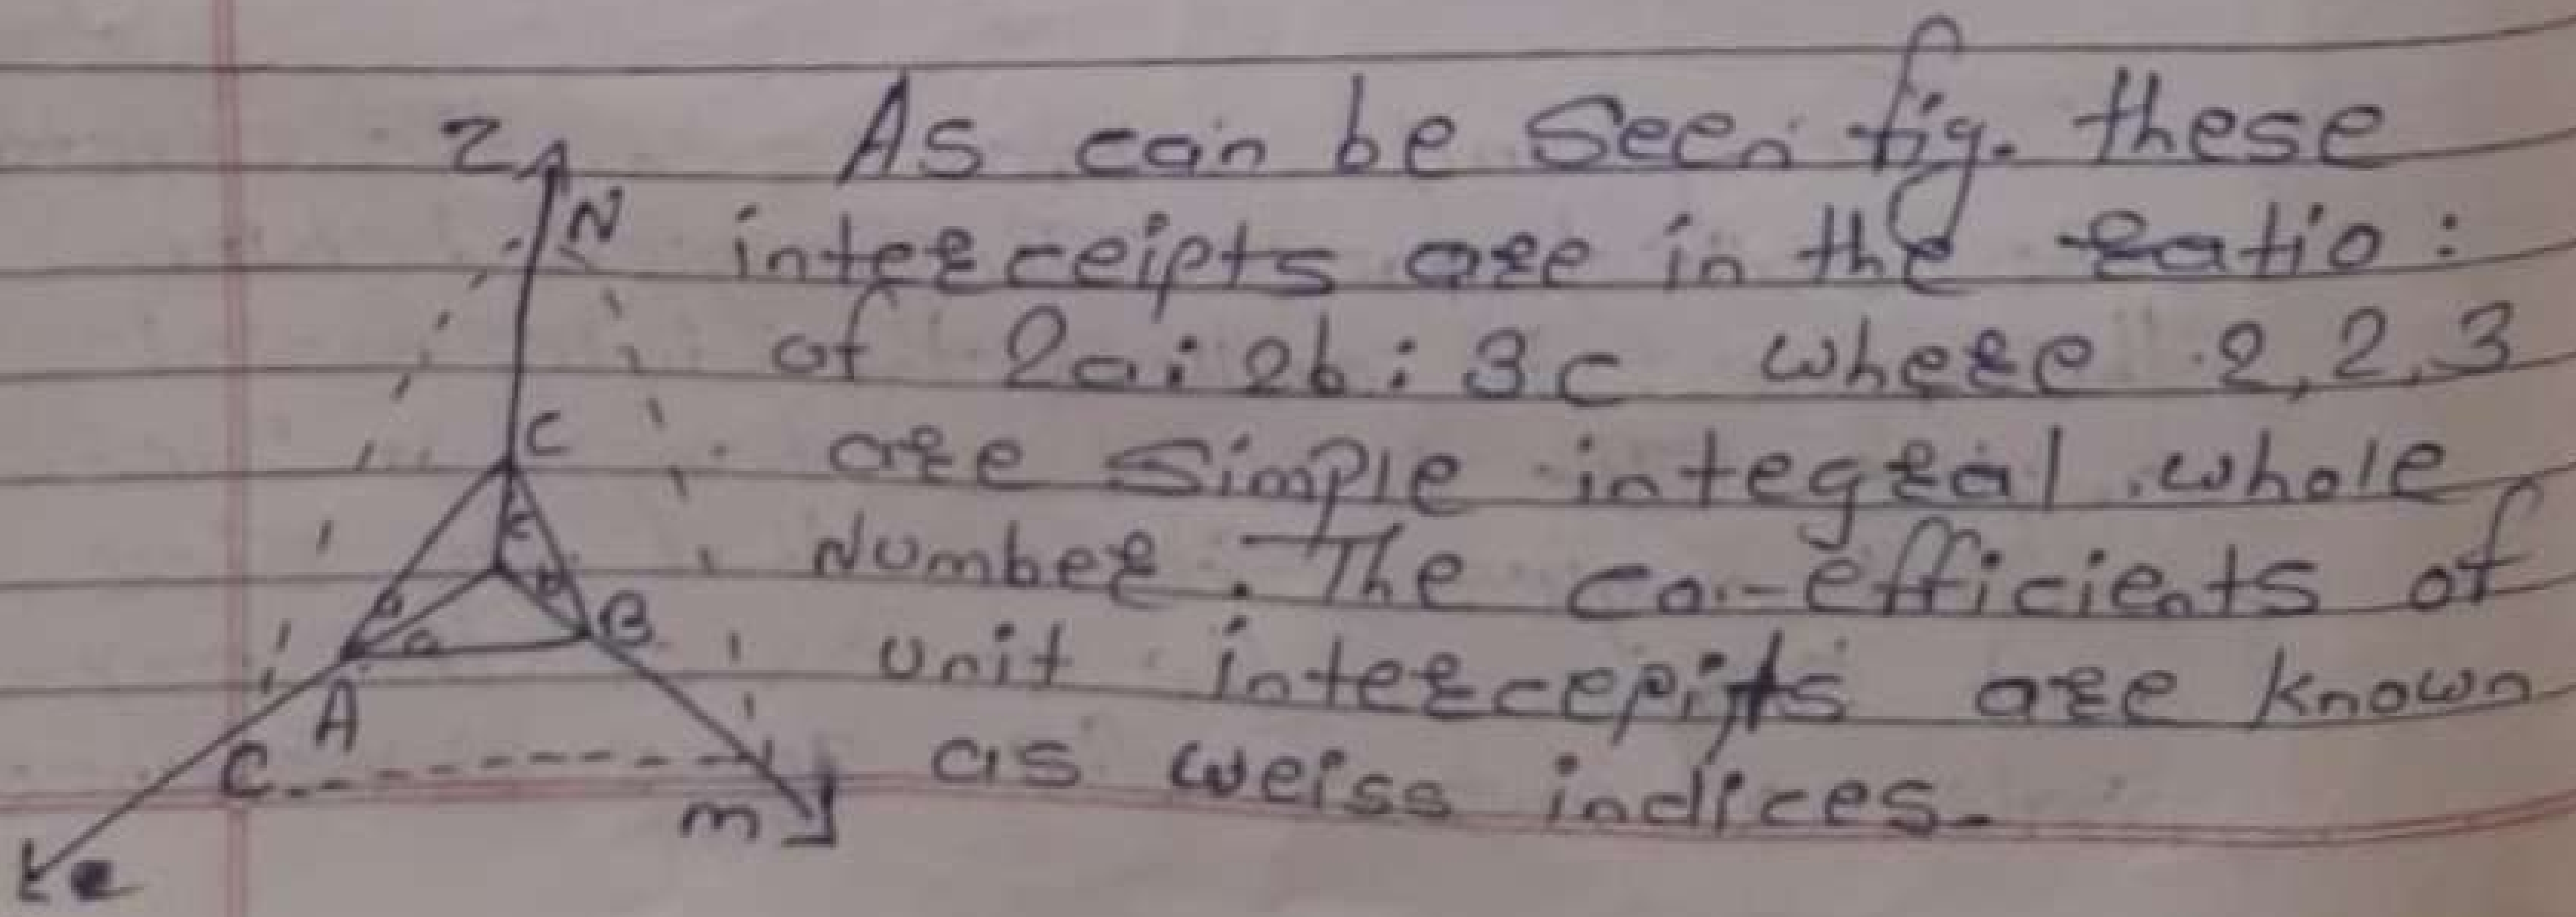 Z
N
As can be seen fig. these
interceipts are in the ratio:
of 2a: 2b: 3c where 2,2,3
C
are simple integral whole
c
Number. The co-efficients of
b
B
a
unit intercepts are known
A
C
as weiss indices.
m